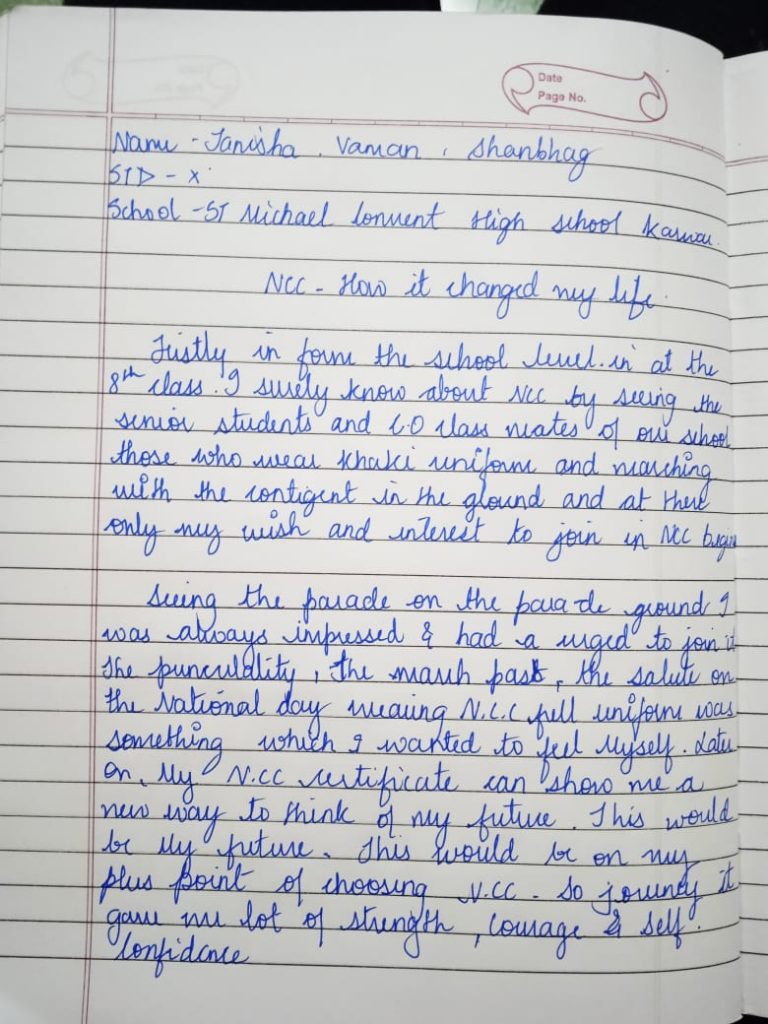 Date
Page No.
Name - Tanisha . Vaman . Shanbhag
STD - X
School - ST Michael Convent High School Karwar.
NCC - How it changed my life.
Firstly in form the school level. in at the
8th class. I surely know about NCC by seeing the
senior students and C.O class mates of our school
those who wear khaki uniform and marching
with the contigent in the ground and at there
only my wish and interest to join in NCC begin
Seeing the parade on the parade ground I
was always impressed & had a urged to join it
the punculality, the march past, the salute on
the National day wearing N.C.C full uniform was
something which I wanted to feel Myself. Later
on, My N.CC certificate can show me a
new way to think of my future. This would
be My future. This would be on my
plus point of choosing N.CC. So jouney it
gave me lot of strength, courage & self.
Confidence